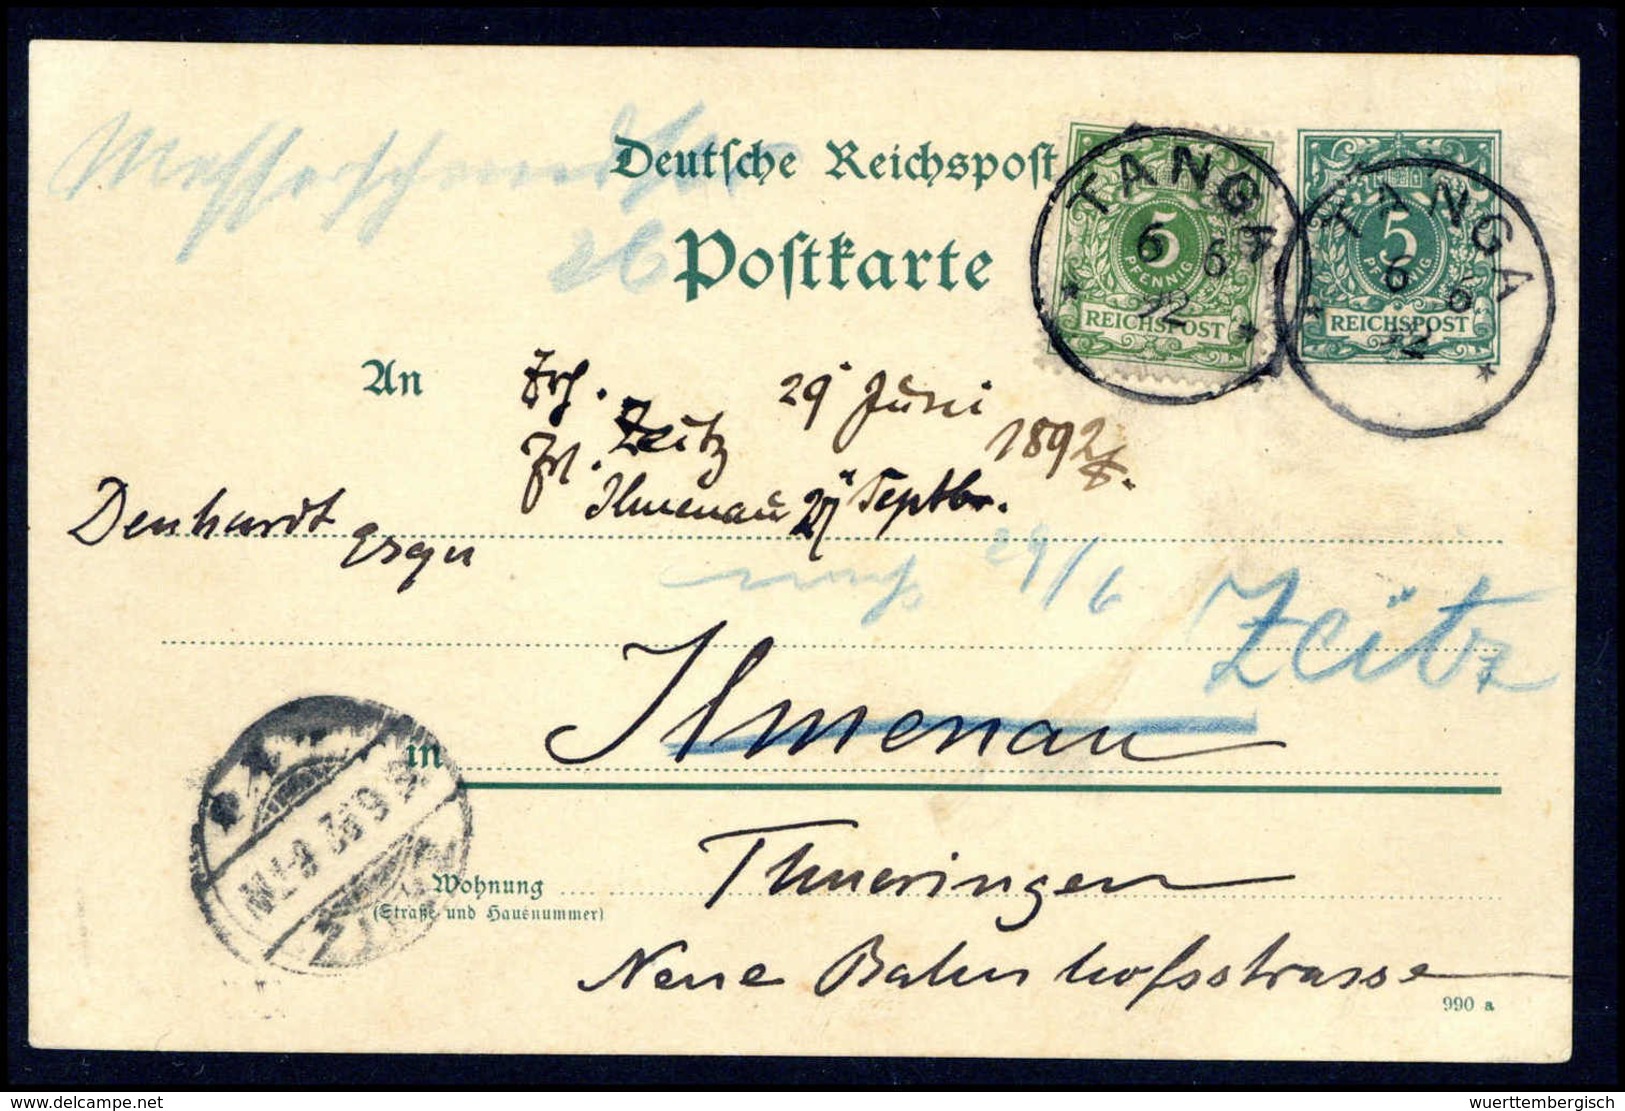 Messerschmidtstr
26
Deutsche Reichspost
Postkarte
TANGA
6 6
92
5
PFENNIG
REICHSPOST
TANGA
6 6
92
5
PFENNIG
REICHSPOST
An
Zeitz 29 Juni
1892
Ilmenau 27 Septbr.
Denhardt
29/6
Zeitz
in Ilmenau
Wohnung
(Straße und Hausnummer)
Thueringen
Neue Bahnhofsstrasse
990 a
wuerttembergisch
www.delcampe.net